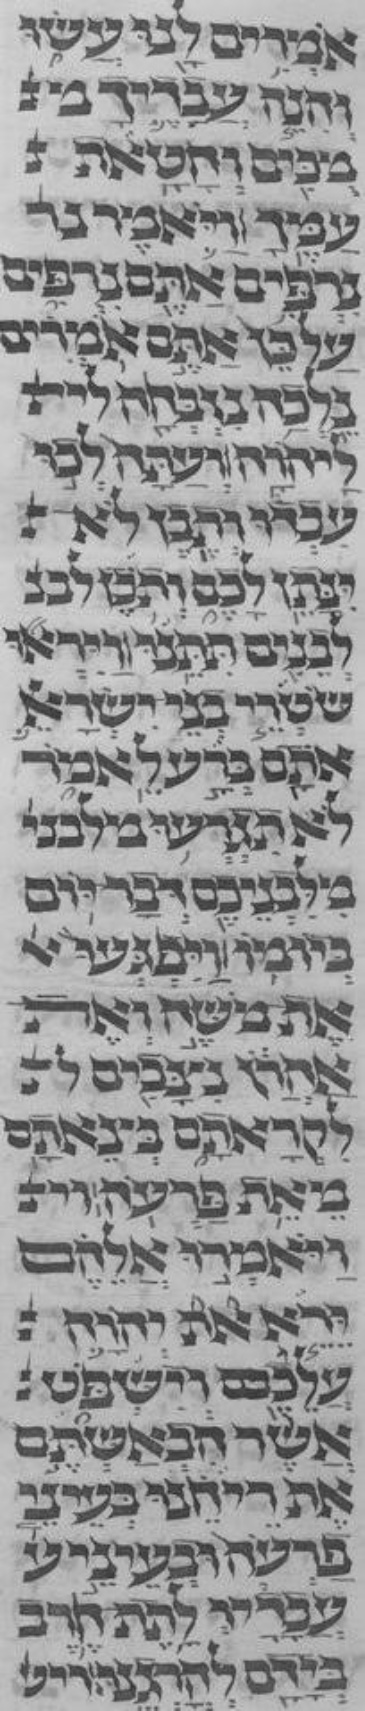 אמרים לנו עשו
והנה עבדיך מ
מכים וחטאת
עמך ויאמר נר
נרפים אתם נרפים
על כן אתם אמרים
נלכה נזבחה לי
ליהוה ועתה לכו
עבדו ותבן לא
ינתן לכם ותכן לבנ
לבנים תתנו ויראו
שטרי בני ישרא
אתם ברע לאמר
לא תגרעו מלבני
מלבניכם דבר יום
ביומו ויפגעו
את משה ואת
אהרן נצבים ל
לקראתם בצאתם
מאת פרעה וי
ויאמרו אלהם
ירא את יהוה
עליכם וישפט
אשר הבאשתם
את ריחנו בעיני
פרעה ובעיני ע
עבדיו לתת חרב
בידם להרגנו ויש